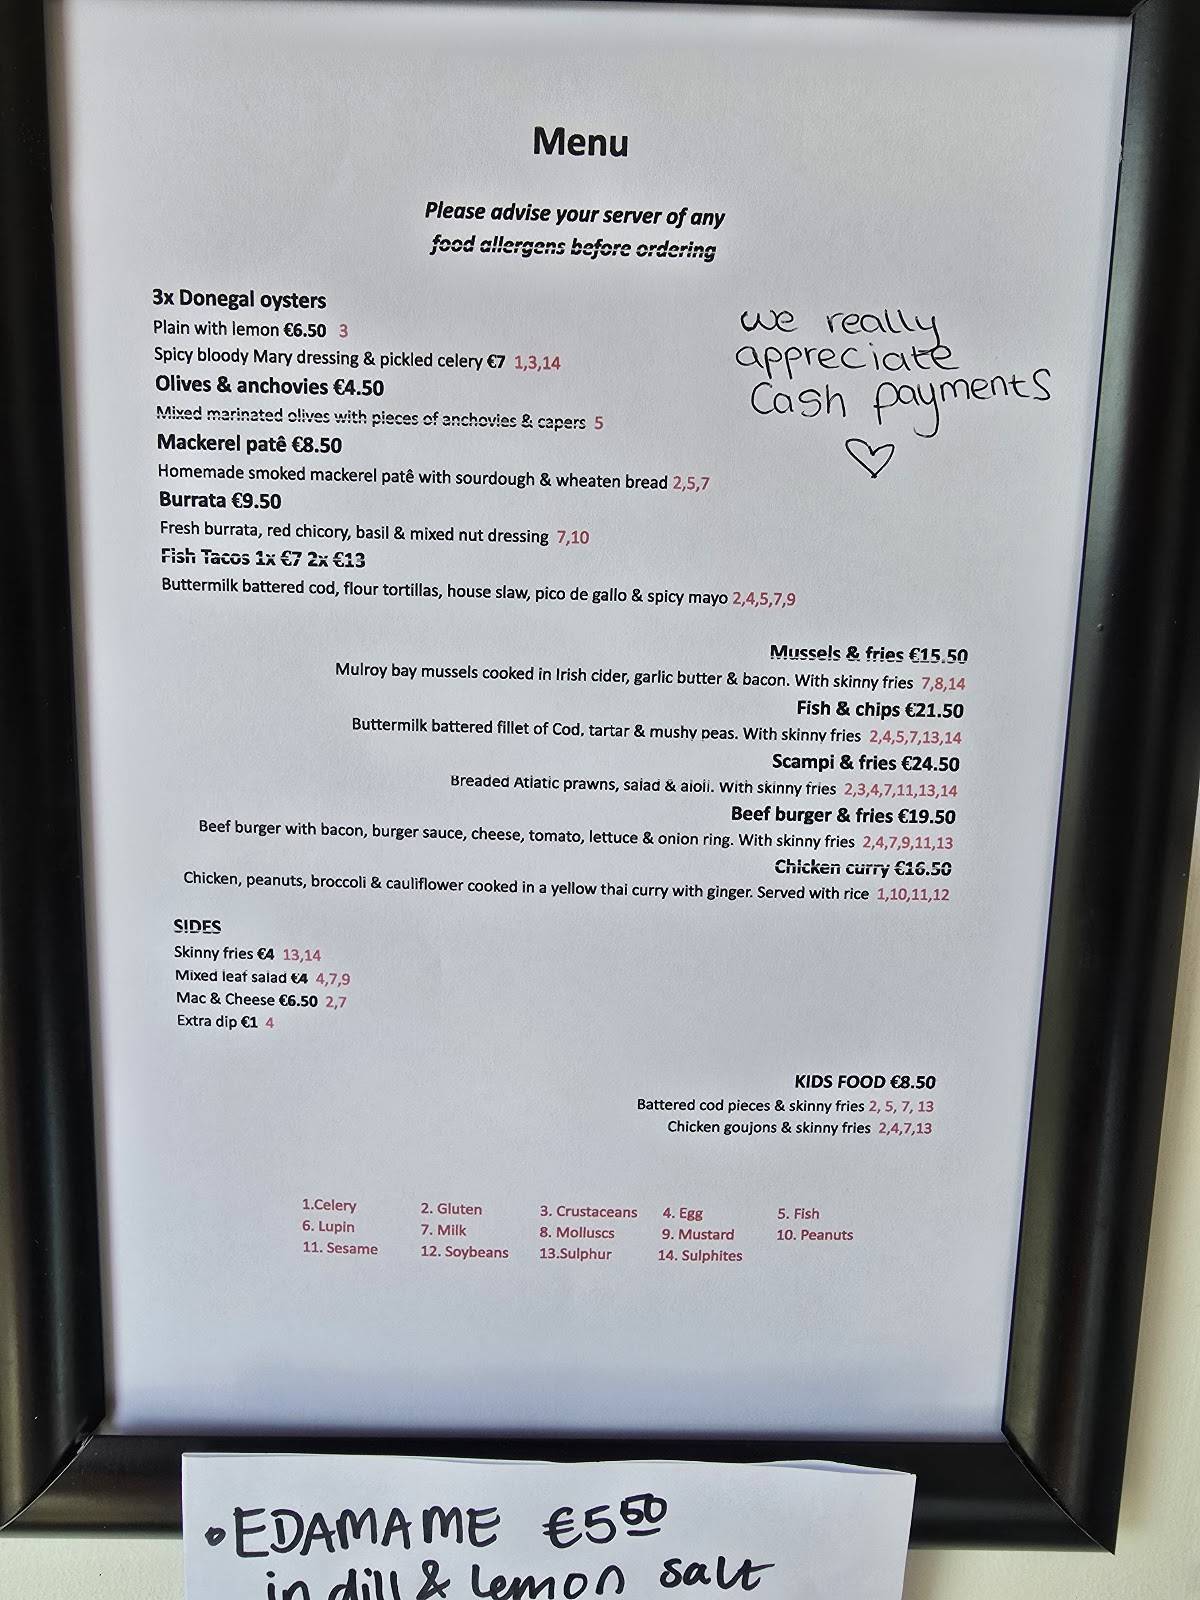 Menu
Please advise your server of any
food allergens before ordering
3x Donegal oysters
Plain with lemon €6.50 3
Spicy bloody Mary dressing & pickled celery €7 1,3,14
Olives & anchovies €4.50
Mixed marinated olives with pieces of anchovies & capers 5
Mackerel patê €8.50
Homemade smoked mackerel patê with sourdough & wheaten bread 2,5,7
Burrata €9.50
Fresh burrata, red chicory, basil & mixed nut dressing 7,10
Fish Tacos 1x €7 2x €13
Buttermilk battered cod, flour tortillas, house slaw, pico de gallo & spicy mayo 2,4,5,7,9
we really
appreciate
Cash payments
Mussels & fries €15.50
Mulroy bay mussels cooked in Irish cider, garlic butter & bacon. With skinny fries 7,8,14
Fish & chips €21.50
Buttermilk battered fillet of Cod, tartar & mushy peas. With skinny fries 2,4,5,7,13,14
Scampi & fries €24.50
Breaded Atlatic prawns, salad & aioli. With skinny fries 2,3,4,7,11,13,14
Beef burger & fries €19.50
Beef burger with bacon, burger sauce, cheese, tomato, lettuce & onion ring. With skinny fries 2,4,7,9,11,13
Chicken curry €16.50
Chicken, peanuts, broccoli & cauliflower cooked in a yellow thai curry with ginger. Served with rice 1,10,11,12
SIDES
Skinny fries €4 13,14
Mixed leaf salad €4 4,7,9
Mac & Cheese €6.50 2,7
Extra dip €1 4
KIDS FOOD €8.50
Battered cod pieces & skinny fries 2, 5, 7, 13
Chicken goujons & skinny fries 2,4,7,13
1.Celery 2. Gluten 3. Crustaceans 4. Egg 5. Fish
6. Lupin 7. Milk 8. Molluscs 9. Mustard 10. Peanuts
11. Sesame 12. Soybeans 13.Sulphur 14. Sulphites
• EDAMAME €5 50
in dill & Lemon salt